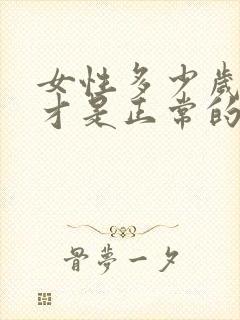 女性多少歲
才是正常的
骨夢一夕